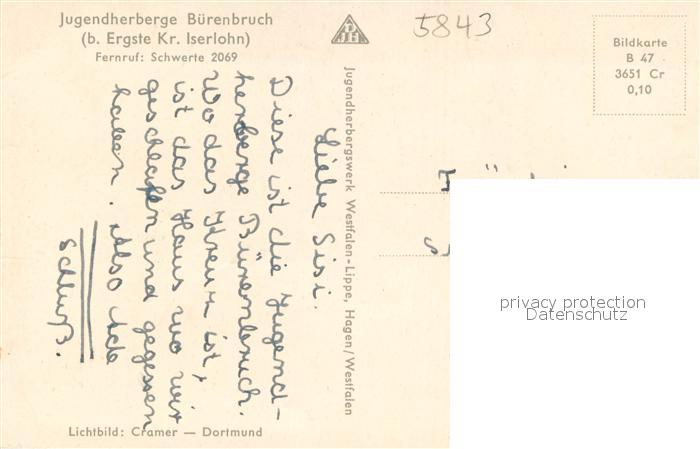 Jugendherberge Bürenbruch
(b. Ergste Kr. Iserlohn)
Fernruf: Schwerte 2069
DJH
5843
Bildkarte
B 47
3651 Cr
0,10
Jugendherbergswerk Westfalen-Lippe, Hagen/Westfalen
Liebe Sisi.
Diese ist die Jugend-
herberge Bürenbruch.
Wo das Kreuz ist,
ist das Haus wo wir
geschlafen und gegessen
haben. Also Ade
Schluß.
Lichtbild: Cramer — Dortmund
privacy protection
Datenschutz